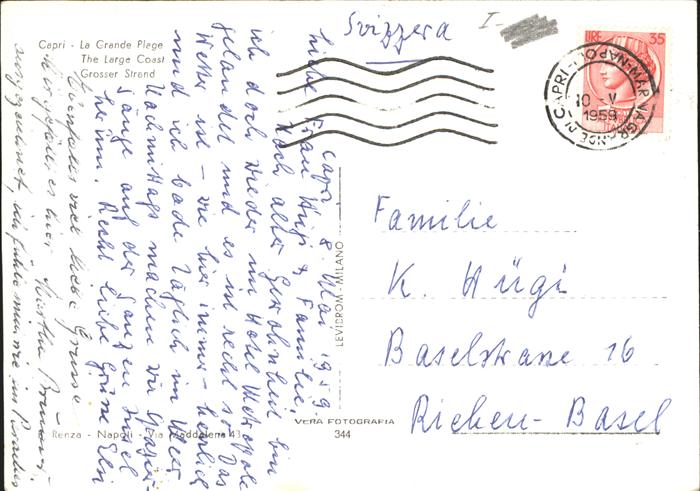 Capri - La Grande Plage
The Large Coast
Grosser Strand
Svizzera
I-
LIRE 35
CAPRI
MARINA GRANDE
10-V
1959
Capri 8 Mai 1959.
Liebe Frau Hügi & Familie,
Nach alter Gewohnheit bin
ich doch wieder im Hotel Metropole
gelandet und es ist recht so. Das
Wetter ist - wie hier immer - herrlich
und ich bade täglich im Meer
Nachmittags machen wir Spazier-
gänge auf der ganzen Insel
herum. Recht liebe Grüsse Elsi
viele liebe Grüsse
hier Martha
LEVICROM MILANO
VERA FOTOGRAFIA
344
Renza - Napoli - Via Maddalena 43
Familie
K. Hügi
Baselstrasse 16
Riehen-Basel